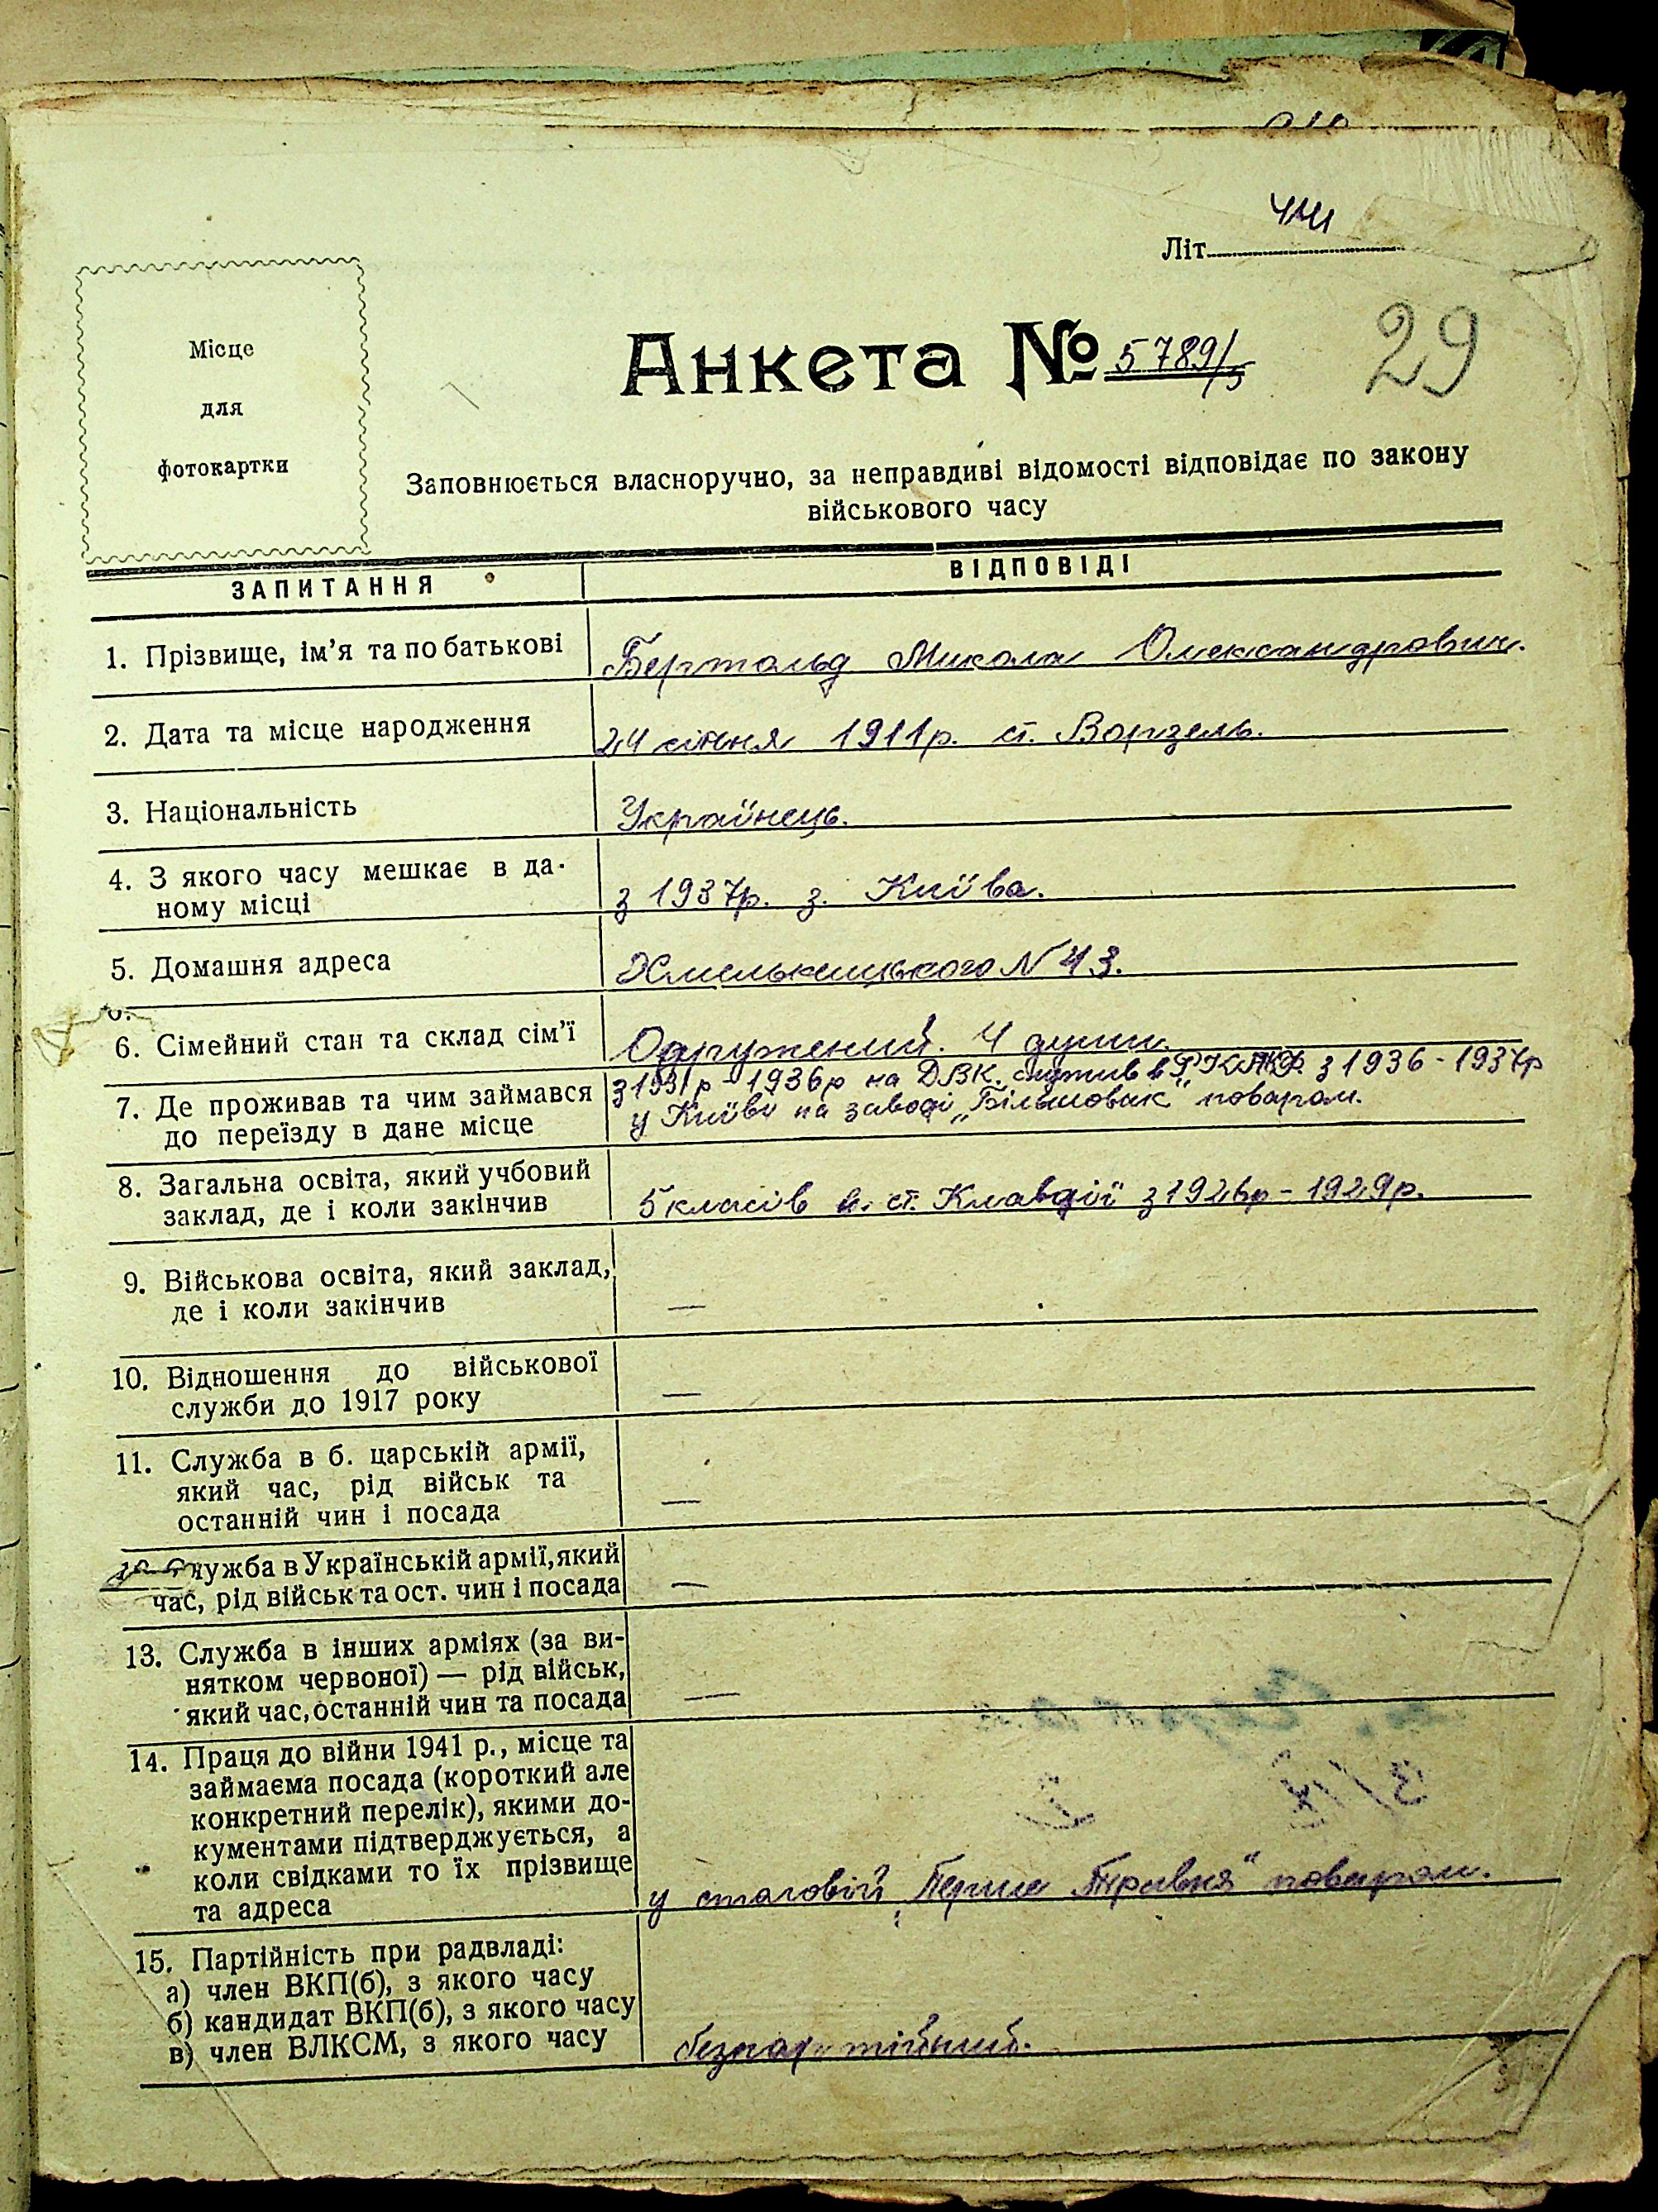 Літ.
Місце
для
фотокартки
Анкета № 5789/5
29
Заповнюється власноручно, за неправдиві відомості відповідає по закону
військового часу
ЗАПИТАННЯ ВІДПОВІДІ
1. Прізвище, ім'я та по батькові Бертольд Микола Олександрович.
2. Дата та місце народження 24 січня 1911р. ст. Ворзель.
3. Національність Українець.
4. З якого часу мешкає в да-
ному місці з 1937р. з. Київа.
5. Домашня адреса Хмельницького N 43.
6. Сімейний стан та склад сім'ї Одружений. 4 душі.
7. Де проживав та чим займався з 1931р - 1936р на ДВК. служив в РККА з 1936 - 1937р
до переїзду в дане місце у Київі на заводі „Більшовик" поваром.
8. Загальна освіта, який учбовий
заклад, де і коли закінчив 5 класів ст. Клавдії з 1926р - 1929р.
9. Військова освіта, який заклад,
де і коли закінчив —
10. Відношення до військової
служби до 1917 року —
11. Служба в б. царській армії,
який час, рід військ та
останній чин і посада —
Служба в Українській армії, який
час, рід військ та ост. чин і посада —
13. Служба в інших арміях (за ви-
нятком червоної) — рід військ,
який час, останній чин та посада —
14. Праця до війни 1941 р., місце та
займаєма посада (короткий але
конкретний перелік), якими до-
кументами підтверджується, а
коли свідками то їх прізвище
та адреса у столовій „Перше Травня" поваром.
15. Партійність при радвладі:
а) член ВКП(б), з якого часу
б) кандидат ВКП(б), з якого часу
в) член ВЛКСМ, з якого часу безпартійний.